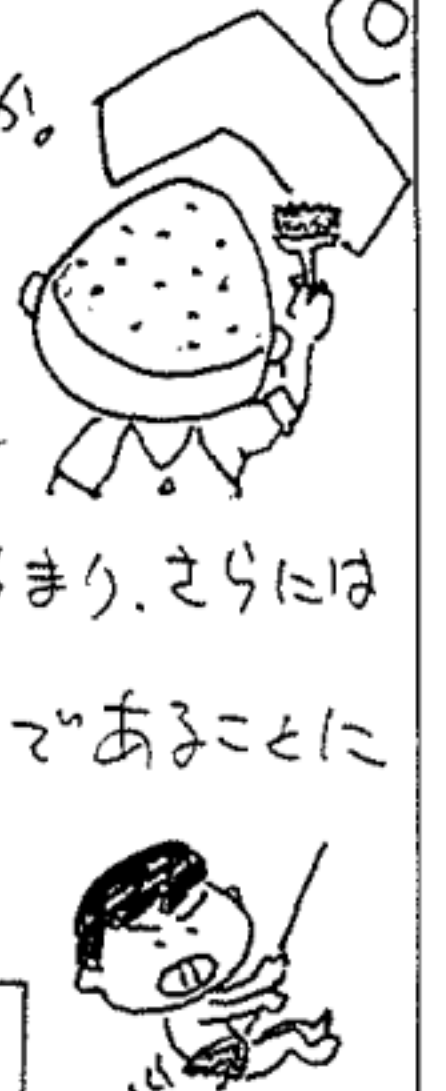 か。
まり、さらには
であることに